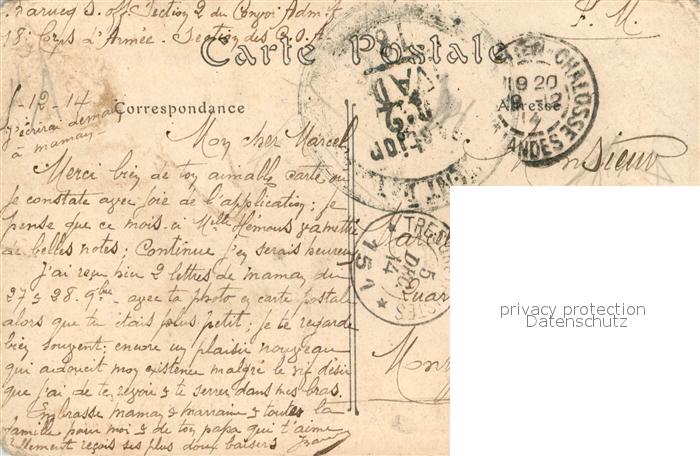 Barucq S. off. Section 2 du Convoi Adm.f
F. M.
18e Corps d'Armée. Section des C.O.A.
Carte Postale
5-12-14
Correspondance
Adresse
j'écrirai demain
à maman
Mon cher Marcel
Monsieur
Merci bien de ton aimable carte où
je constate avec joie de l'application; je
pense que ce mois-ci Mlle va mettre
de belles notes; Continue j'en serais heureux
J'ai reçu hier 2 lettres de maman du
27 & 28. 9bre avec ta photo en carte postale
alors que tu étais plus petit; je te regarde
bien souvent; encore un plaisir nouveau
qui adoucit mon existence malgré le vif désir
que j'ai de te revoir & te serrer dans mes bras.
Embrasse maman & marraine & toute la
famille pour moi & de ton papa qui t'aime
reçois ses plus doux baisers
CHALOSSE
19 20
9-12
14
LANDES
TRESOR
5
DEC
14
* 151 *
privacy protection
Datenschutz